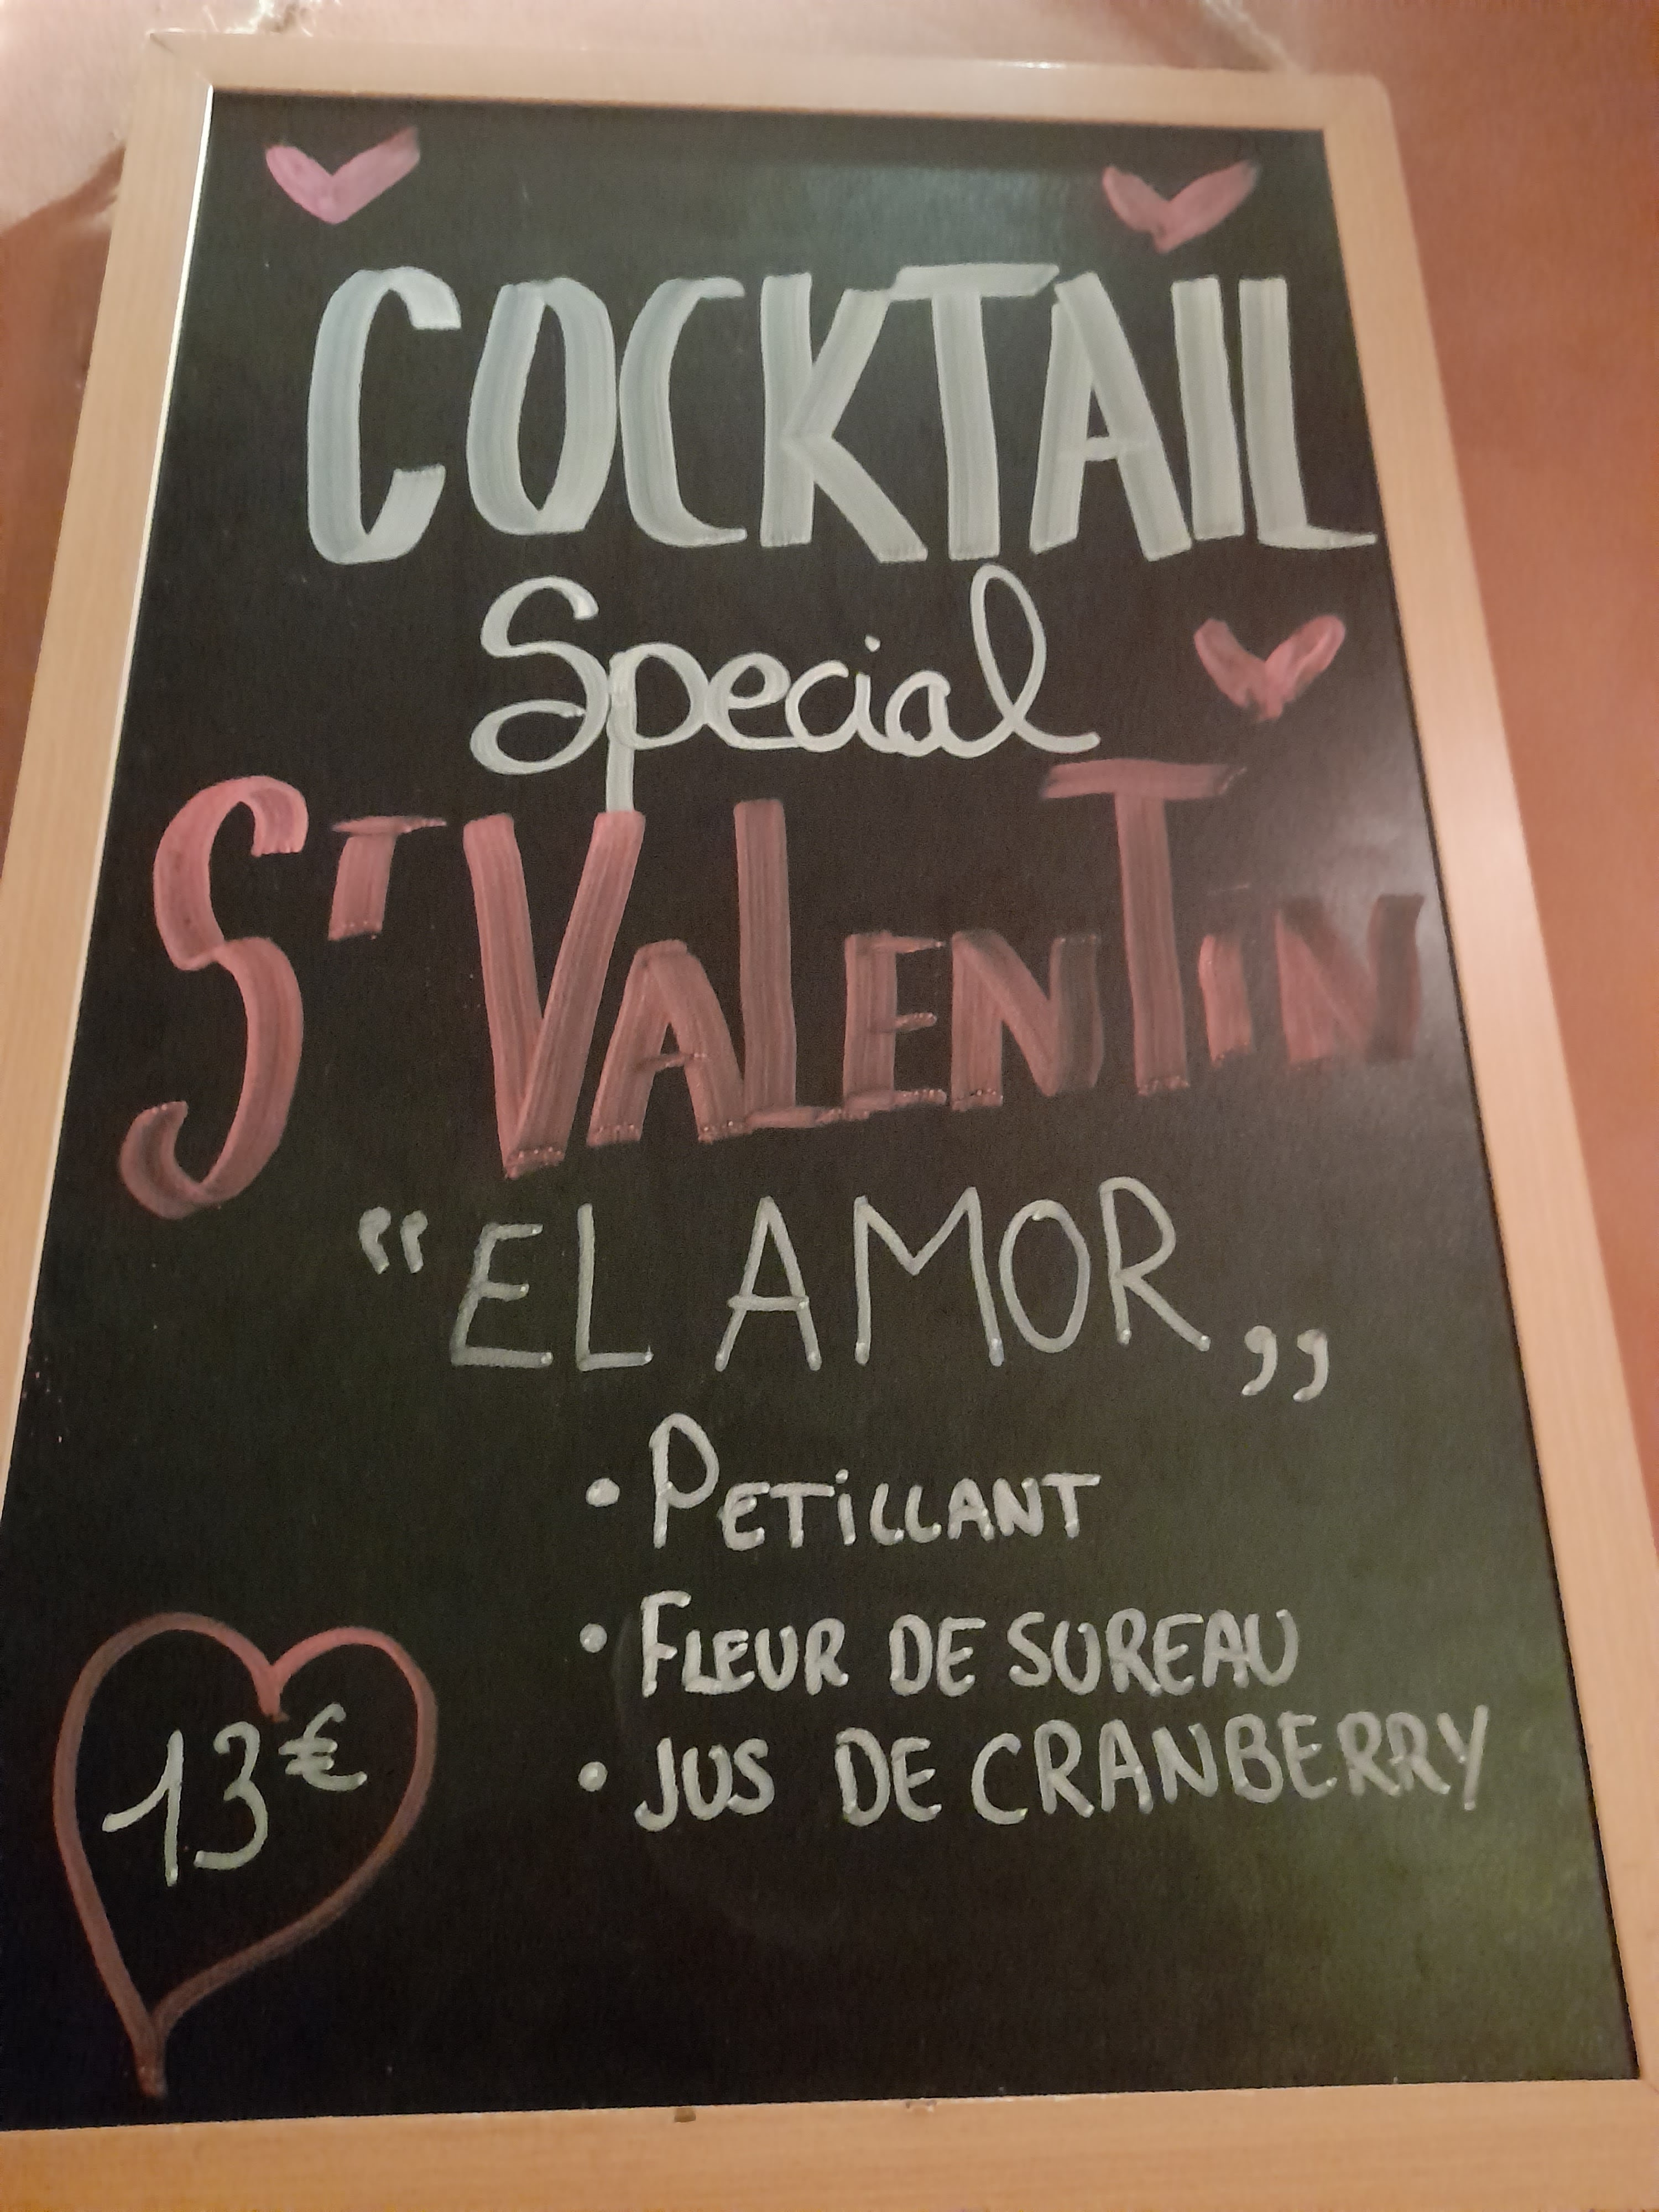 COCKTAIL
Special
ST VALENTIN
"EL AMOR„
• PETiLLANT
• FLEUR DE SUREAU
• JUS DE CRANBERRY
13€